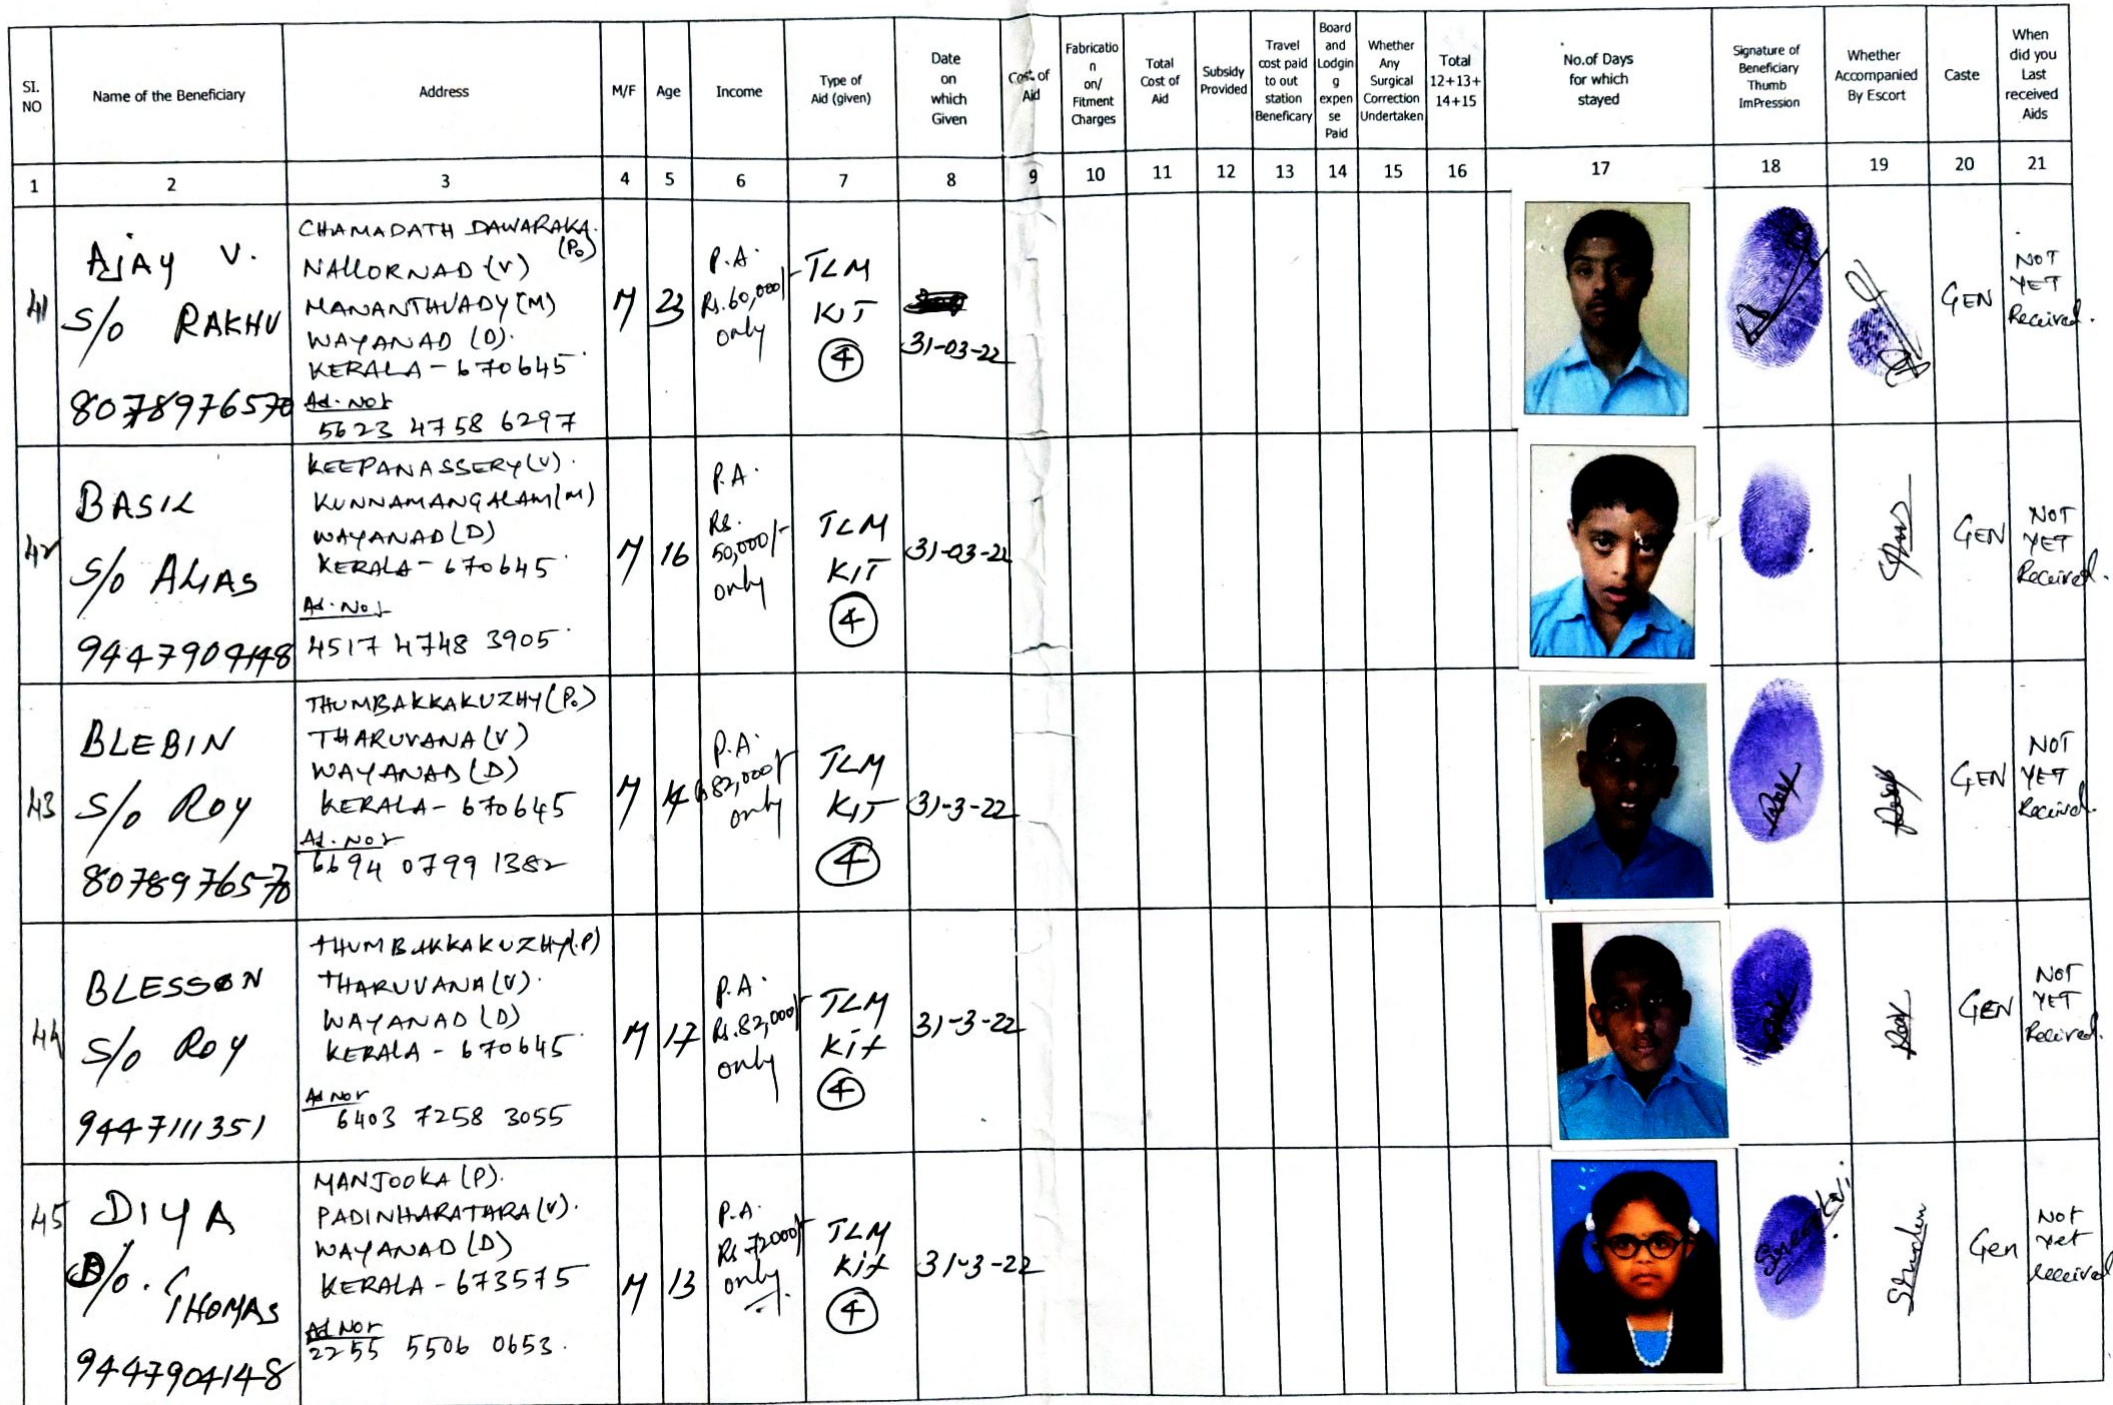 SI. NO
Name of the Beneficiary
Address
M/F
Age
Income
Type of Aid (given)
Date on which Given
Cost of Aid
Fabricatio n on/ Fitment Charges
Total Cost of Aid
Subsidy Provided
Travel cost paid to out station Beneficary
Board and Lodgin g expen se Paid
Whether Any Surgical Correction Undertaken
Total 12+13+ 14+15
No.of Days for which stayed
Signature of Beneficiary Thumb ImPression
Whether Accompanied By Escort
Caste
When did you Last received Aids
1 2 3 4 5 6 7 8 9 10 11 12 13 14 15 16 17 18 19 20 21
41
AJAY V.
S/o RAKHU
8078976570
CHAMADATH DAWARAKA.
(Po)
NALLORNAD (V)
MANANTHVADY (M)
WAYANAD (D).
KERALA - 670645
Ad. No:
5623 4758 6297
M
23
P.A.
Rs. 60,000/-
only
TLM
KIT
4
31-03-22
GEN
NOT
YET
Received.
42
BASIL
S/o ALIAS
9447904148
KEEPANASSERY (V).
KUNNAMANGALAM (M)
WAYANAD (D)
KERALA - 670645
Ad. No:
4517 4748 3905
M
16
P.A.
Rs.
50,000/-
only
TLM
KIT
4
31-03-22
GEN
NOT
YET
Received.
43
BLEBIN
S/o Roy
8078976570
THUMBAKKAKUZHY (Po)
THARUVANA (V)
WAYANAD (D)
KERALA - 670645
Ad. No:
6694 0799 1382
M
14
P.A.
82,000/-
only
TLM
KIT
4
31-3-22
Roy
Roy
GEN
NOT
YET
Received.
44
BLESSON
S/o Roy
9447111351
THUMBAKKAKUZHY (P)
THARUVANA (V).
WAYANAD (D)
KERALA - 670645
Ad No:
6403 7258 3055
M
17
P.A.
Rs. 82,000/-
only
TLM
Kit
4
31-3-22
Roy
GEN
NOT
YET
Received.
45
DIYA
D/o. THOMAS
9447904148
MANJOOKA (P).
PADINHARATHARA (V).
WAYANAD (D)
KERALA - 673575
Ad No:
2255 5506 0653.
M
13
P.A.
Rs 72000/-
only
TLM
Kit
4
31-3-22
Gen
Not
yet
received